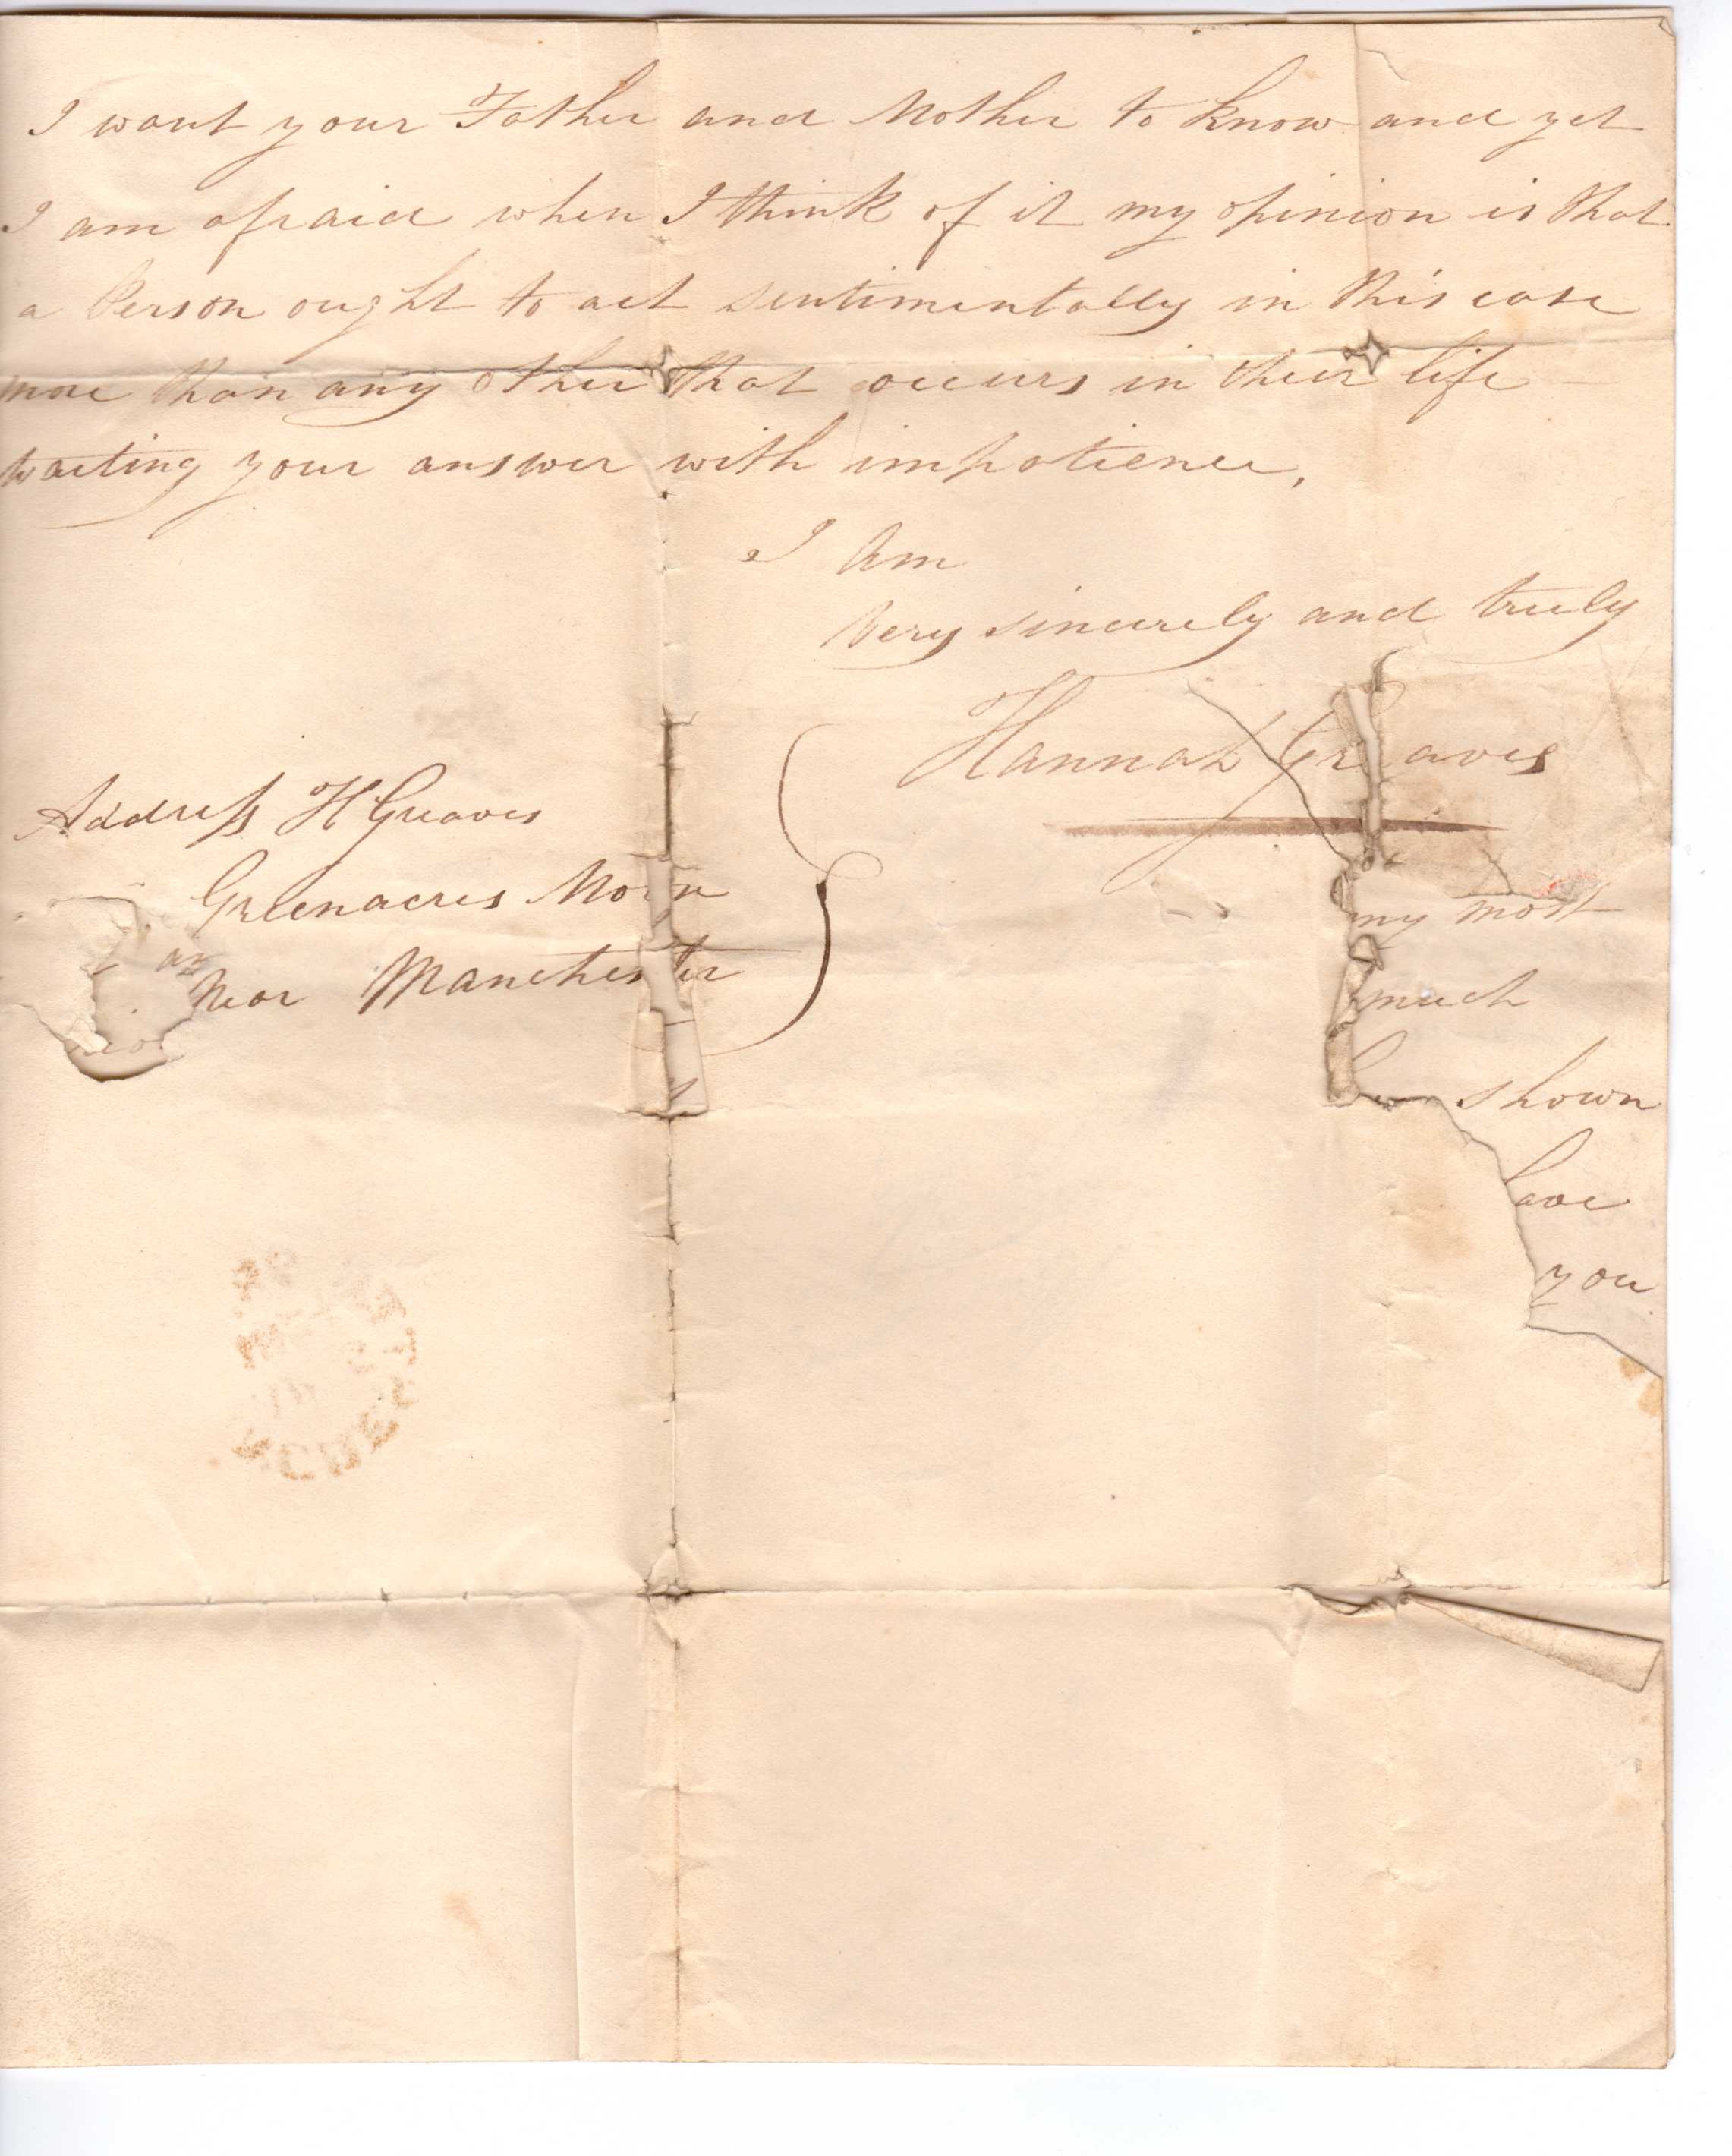 I want your Father and Mother to know and yet
I am afraid when I think of it my opinion is that
a Person ought to act sentimentally in this case
more than any other that occurs in their life
waiting your answer with impatience,
I Am
Very sincerely and truly
Hannah Greaves
Addreſs H Greaves
Greenacres Moor
Near Manchester
my most
much
shown
have
you